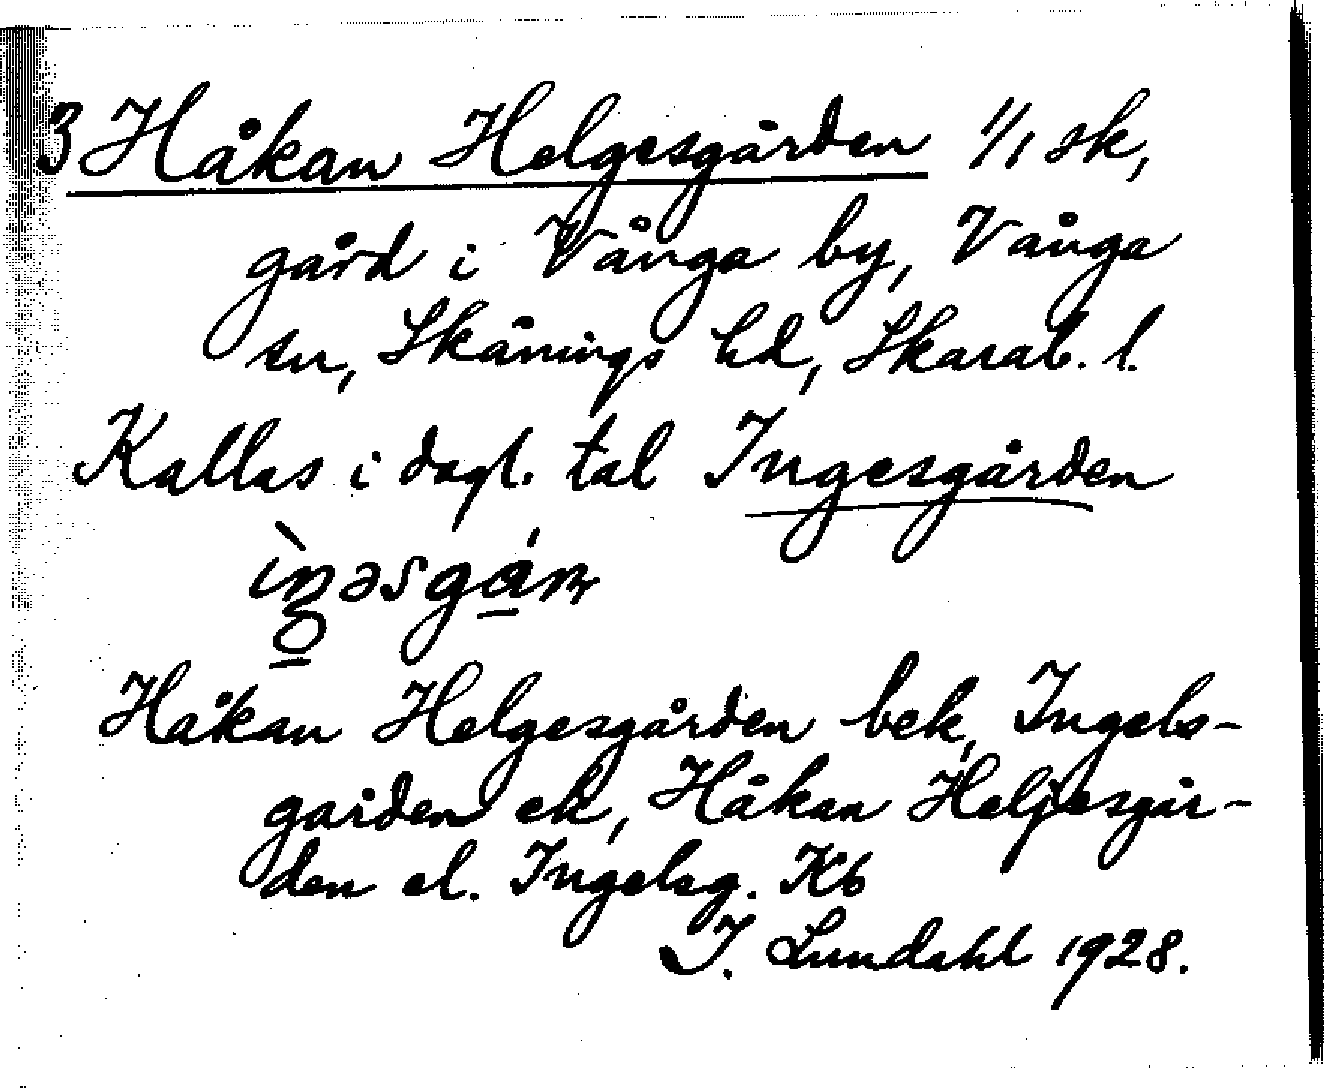 3 Håkan Helgesgården 1/1 sk,
gård i Vånga by, Vånga
sn, Skånings hd, Skarab. l.
Kallas i dagl. tal Ingesgården
Håkan Helgesgården bek, Ingels-
gården ek, Håkan Heljesgår-
den el. Ingelsg. Kb
I. Lundahl 1928.